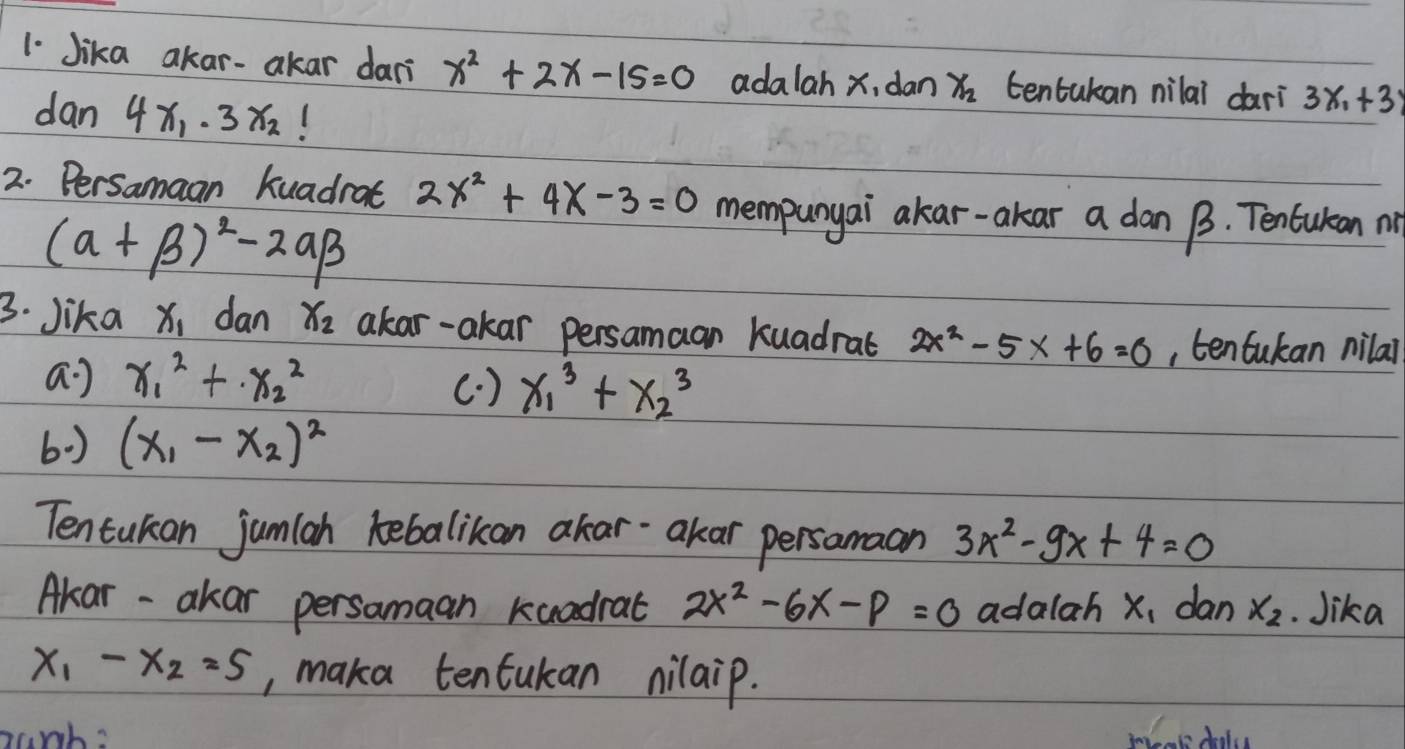 1. Jika akar-akar dari x² + 2x - 15 = 0 adalah x₁ dan x₂ tentukan nilai dari 3x₁ + 3
dan 4x₁ . 3x₂ !
2. Persamaan kuadrat 2x² + 4x - 3 = 0 mempunyai akar-akar a dan β. Tentukan
(a + β)² - 2aβ
3. Jika x₁ dan x₂ akar-akar persamaan kuadrat 2x² - 5x + 6 = 0, tentukan nilai
a.) x₁² + x₂² c.) x₁³ + x₂³
b.) (x₁ - x₂)²
Tentukan jumlah kebalikan akar-akar persamaan 3x² - 9x + 4 = 0
Akar-akar persamaan kuadrat 2x² - 6x - p = 0 adalah x₁ dan x₂. Jika
x₁ - x₂ = 5, maka tentukan nilai p.